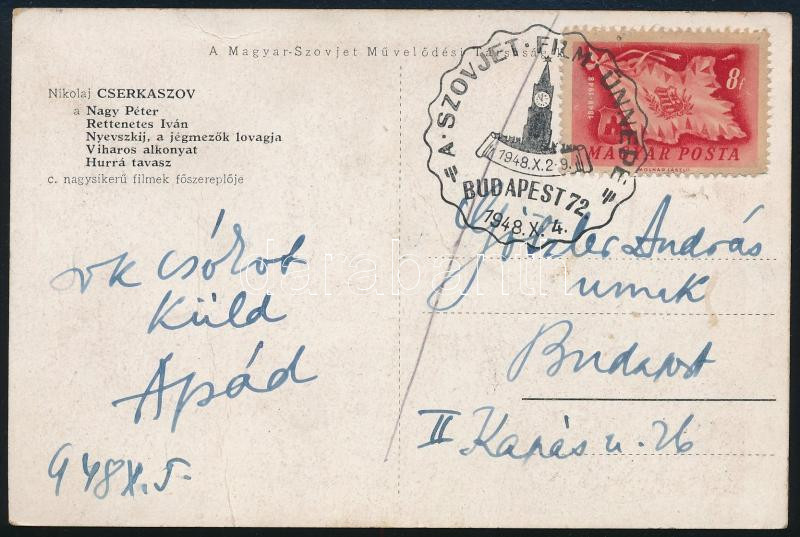 A Magyar-Szovjet Művelődési Társaság
Nikolaj CSERKASZOV
a Nagy Péter
Rettenetes Iván
Nyevszkij, a jégmezők lovagja
Viharos alkonyat
Hurrá tavasz
c. nagysikerű filmek főszereplője
A·SZOVJET·FILM·ÜNNEPE
1948.X.2-9.
BUDAPEST 72
1948.X.4.
1848-1948
8f
MAGYAR POSTA
András
urnak
Budapest
II Kapás u. 26
sok csókot
Küld
Apád
948 X. 5.
darabanth